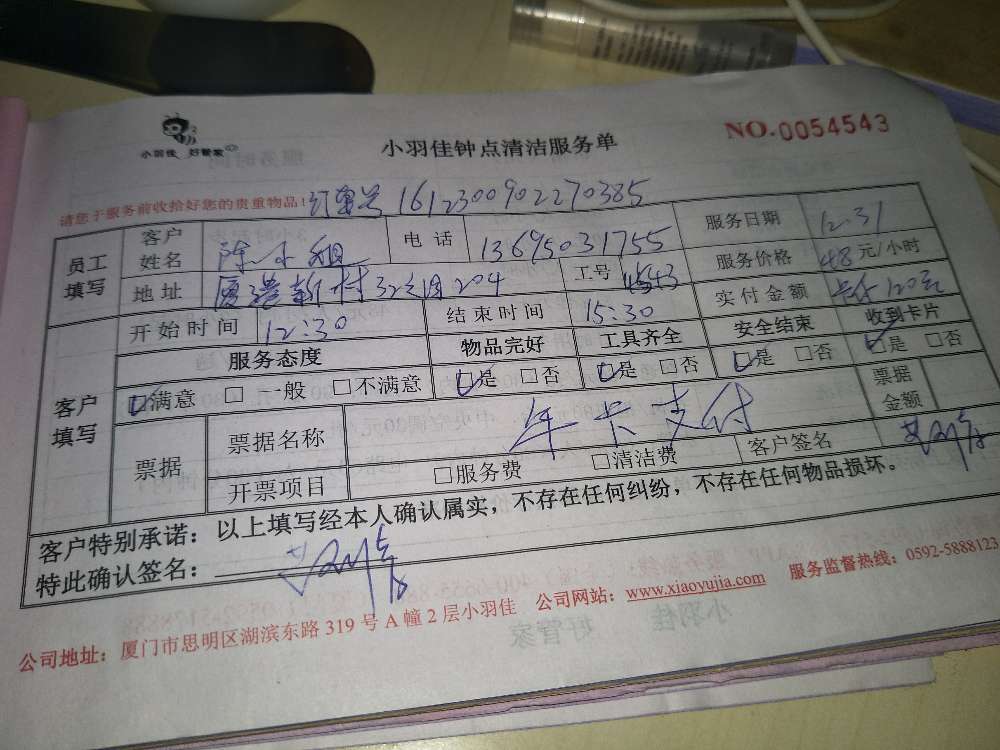 小羽佳 好管家
小羽佳钟点清洁服务单
NO.0054543
请您于服务前收拾好您的贵重物品! 1612300902270385
员工填写 客户姓名 陈小姐 电话 13695031755 服务日期 12.31
地址 厦港新村32 204 工号 4543 服务价格 48元/小时
开始时间 12:30 结束时间 15:30 实付金额 120元
客户填写 服务态度 物品完好 工具齐全 安全结束 收到卡片
☑满意 □一般 □不满意 ☑是 □否 ☑是 □否 ☑是 □否 ☑是 □否
票据 票据名称 年卡支付 票据金额
开票项目 □服务费 □清洁费 客户签名
客户特别承诺：以上填写经本人确认属实，不存在任何纠纷，不存在任何物品损坏。
特此确认签名：
公司地址：厦门市思明区湖滨东路319号A幢2层小羽佳 公司网站：www.xiaoyujia.com 服务监督热线：0592-5888123